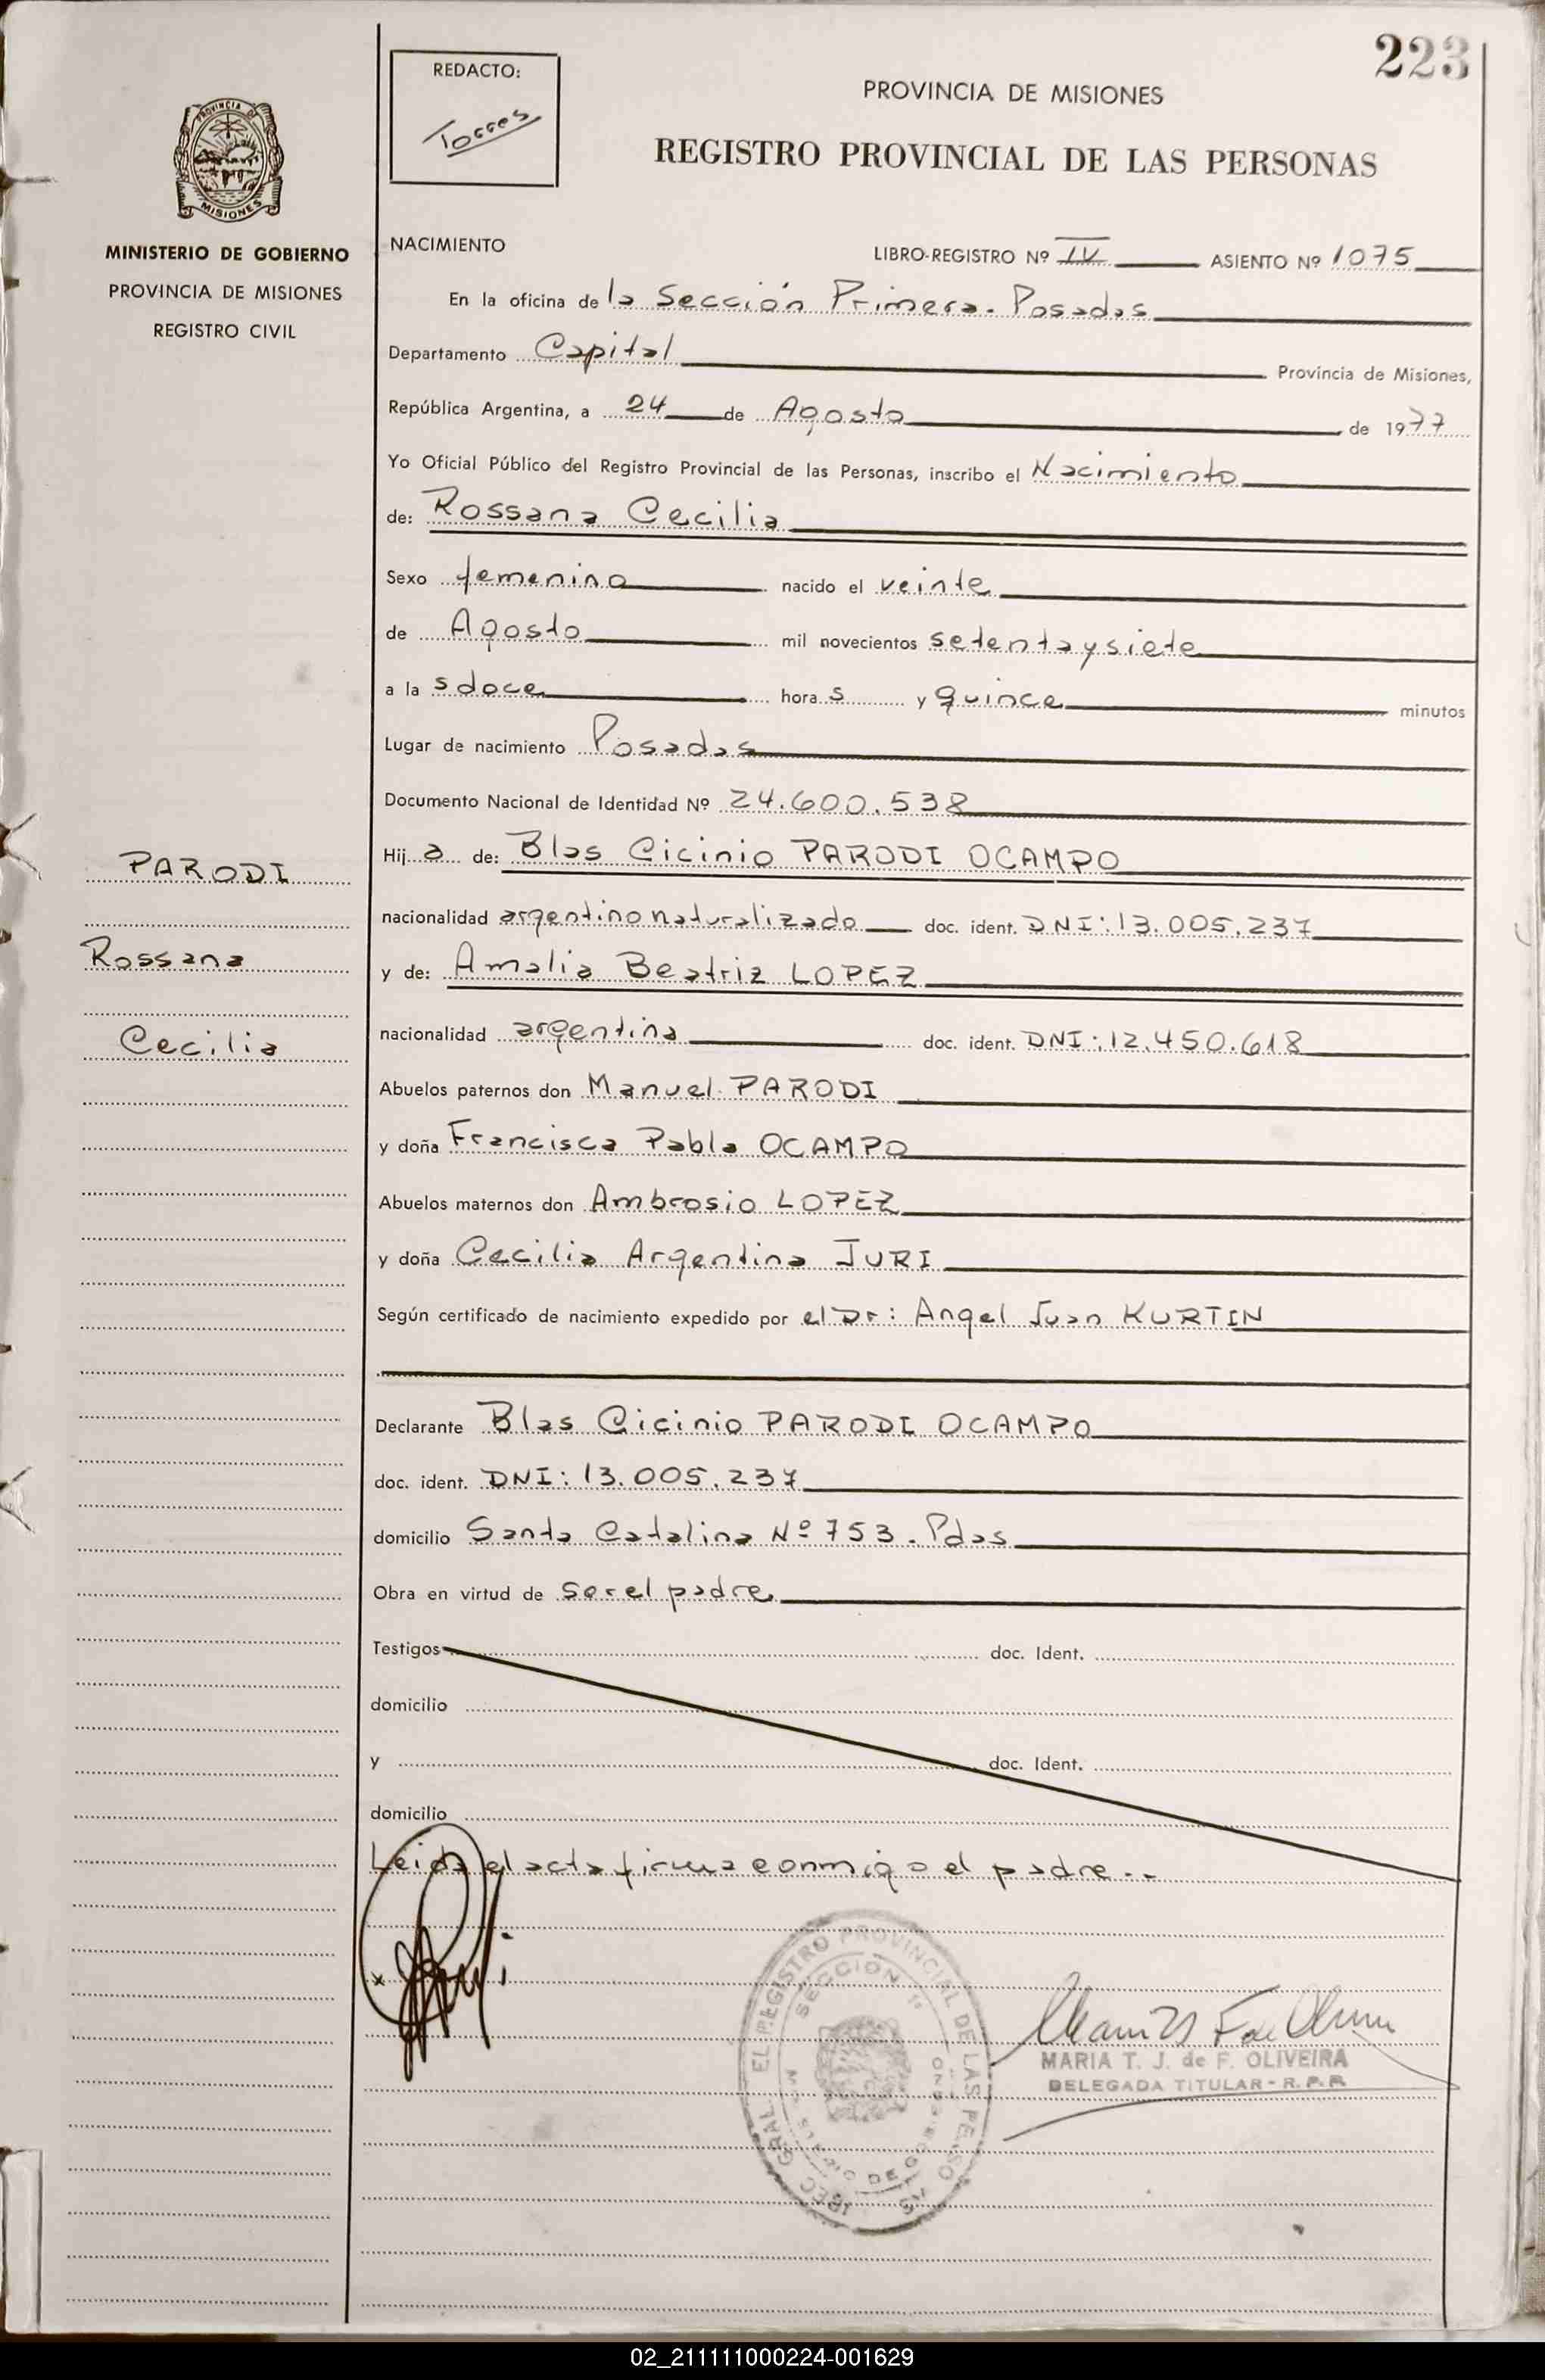 223
REDACTO:
Torres
PROVINCIA DE MISIONES
REGISTRO PROVINCIAL DE LAS PERSONAS
PROVINCIA DE
MISIONES
MINISTERIO DE GOBIERNO
PROVINCIA DE MISIONES
REGISTRO CIVIL
NACIMIENTO LIBRO-REGISTRO Nº IV ASIENTO Nº 1075
En la oficina de la Sección Primera. Posadas
Departamento Capital Provincia de Misiones,
República Argentina, a 24 de Agosto de 1977
Yo Oficial Público del Registro Provincial de las Personas, inscribo el Nacimiento
de: Rossana Cecilia
Sexo femenino nacido el veinte
de Agosto mil novecientos setenta y siete
a la s doce hora s y quince minutos
Lugar de nacimiento Posadas
Documento Nacional de Identidad Nº 24.600.538
Hij a de: Blas Cicinio PARODI OCAMPO
PARODI
nacionalidad argentino naturalizado doc. ident. DNI: 13.005.237
Rossana
y de: Amalia Beatriz LOPEZ
Cecilia
nacionalidad argentina doc. ident. DNI: 12.450.618
Abuelos paternos don Manuel PARODI
y doña Francisca Pabla OCAMPO
Abuelos maternos don Ambrosio LOPEZ
y doña Cecilia Argentina JURI
Según certificado de nacimiento expedido por el Dr: Angel Juan KURTIN
Declarante Blas Cicinio PARODI OCAMPO
doc. ident. DNI: 13.005.237
domicilio Santa Catalina Nº 753. Pdas
Obra en virtud de ser el padre
Testigos doc. Ident.
domicilio
y doc. Ident.
domicilio
Leida el acta firma conmigo el padre..
x
REGISTRO PROVINCIAL DE LAS PERSONAS
SECCION 1ª
MARIA T. J. de F. OLIVEIRA
DELEGADA TITULAR - R. P. P.
02_211111000224-001629